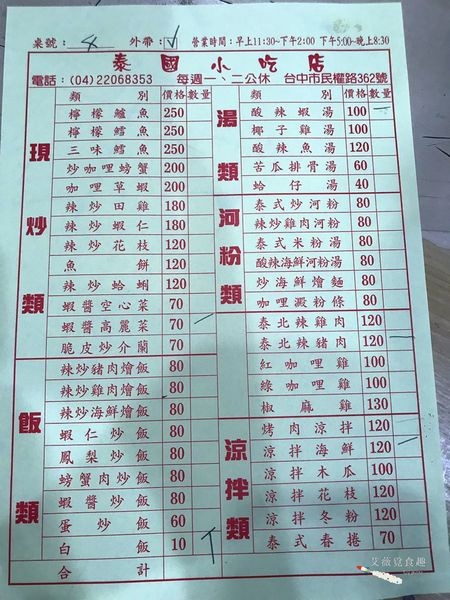 桌號：8 外帶：✓ 營業時間：早上11:30~下午2:00 下午5:00~晚上8:30
泰國小吃店
電話：(04)22068353 每週一、二公休 台中市民權路362號
類別 價格 數量
現炒類
檸檬鱸魚 250
檸檬鱈魚 250
三味鱈魚 250
炒咖哩螃蟹 200
咖哩草蝦 200
辣炒田雞 180
辣炒蝦仁 180
辣炒花枝 120
魚餅 120
辣炒蛤蜊 120
蝦醬空心菜 70
蝦醬高麗菜 70
脆皮炒介蘭 70
飯類
辣炒豬肉燴飯 80
辣炒雞肉燴飯 80
辣炒海鮮燴飯 80
蝦仁炒飯 80
鳳梨炒飯 80
螃蟹肉炒飯 80
蝦醬炒飯 80
蛋炒飯 60
白飯 10
合計
類別 價格 數量
湯類
酸辣蝦湯 100
椰子雞湯 100
酸辣魚湯 120
苦瓜排骨湯 60
蛤仔湯 40
河粉類
泰式炒河粉 80
辣炒雞肉河粉 80
泰式米粉湯 80
酸辣海鮮河粉湯 80
炒海鮮燴麵 80
咖哩澱粉條 80
泰北辣雞肉 120
泰北辣豬肉 120
紅咖哩雞 100
綠咖哩雞 100
椒麻雞 130
涼拌類
烤肉涼拌 120
涼拌海鮮 120
涼拌木瓜 100
涼拌花枝 120
涼拌冬粉 120
泰式春捲 70
艾薇覓食趣